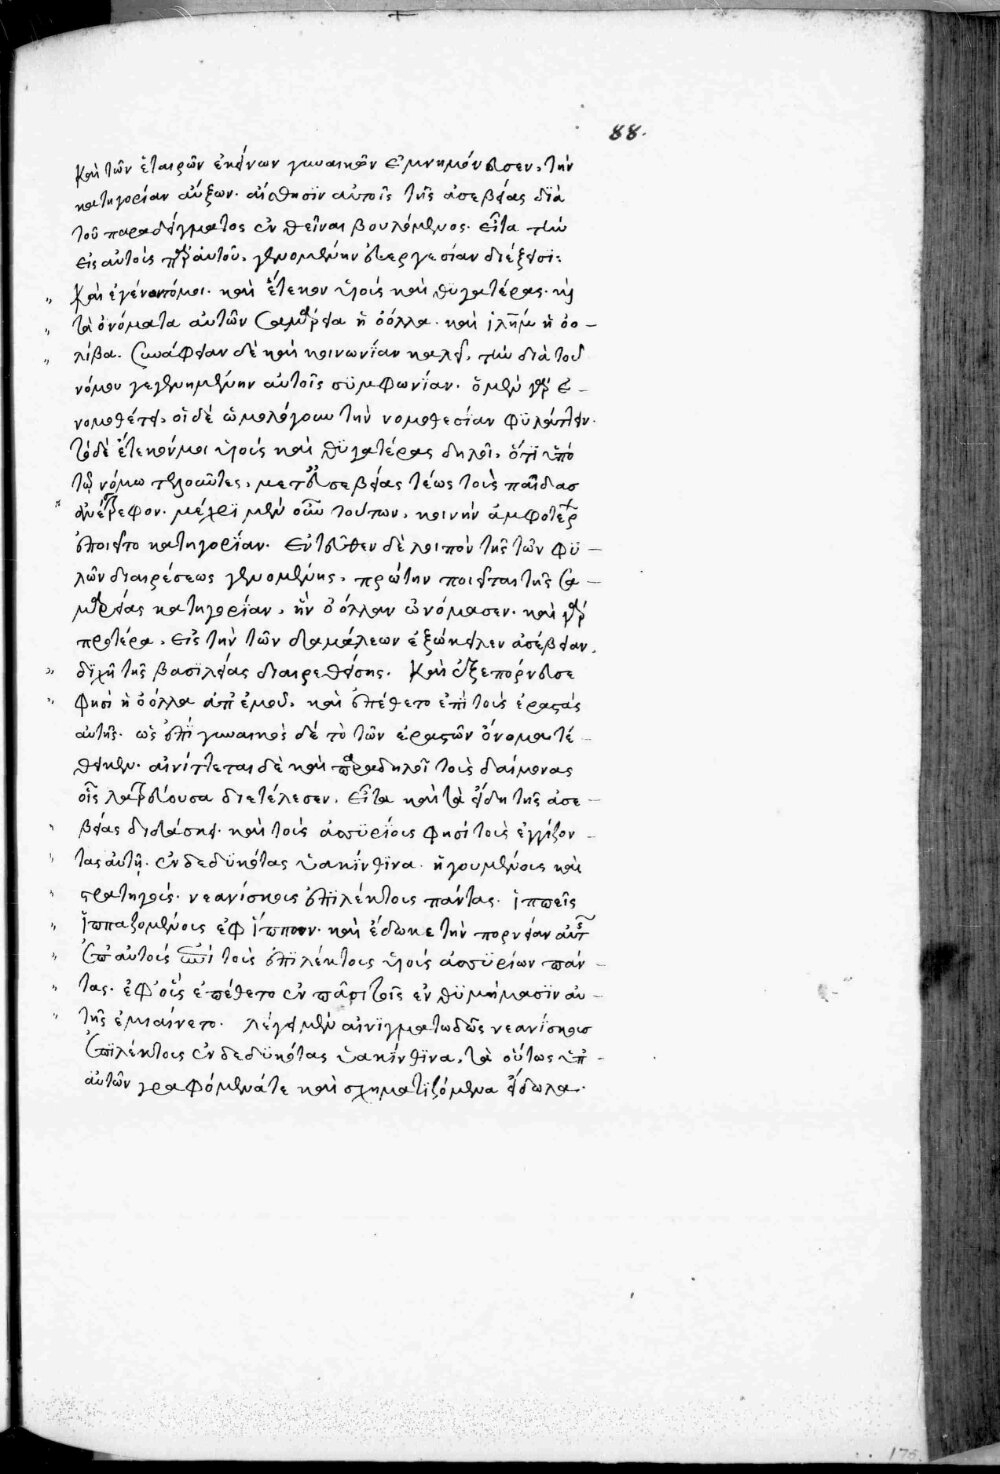 88.
καὶ τῶν ἑταιρῶν ἐκείνων γυναικῶν ἐμνημόνευσεν, τὴν
κατηγορίαν αὔξων· αἴσθησϊν αὐτοῖς τῆς ἀσεβείας δϊὰ
τοῦ παραδείγματος ἐνθεῖναι βουλόμενος· εἶτα τὴν
εἰς αὐτοὺς παρ' αὐτοῦ, γενομένην εὐεργεσίαν διέξεισι:
καὶ ἐγένοντό μοι· καὶ ἔτεκον υἱοὺς καὶ θυγατέρας· καὶ
τὰ ὀνόματα αὐτῶν σαμάρεια ἡ ὀόλλα· καὶ ἱλῆμ ἡ ὀο-
λίβα. συνάφειαν δὲ καὶ κοινωνΐαν καλεῖ, τὴν διὰ τοῦ
νόμου γεγενημένην αὐτοῖς συμφωνίαν· ὁ μὲν γὰρ ἐ-
νομοθέτει, οἱ δὲ ὡμολόγουν τὴν νομοθεσίαν φϋλάττειν·
τὸ δὲ ἔτεκόν μοι υἱοὺς καὶ θϋγατέρας δηλοῖ, ὅτϊ ὑπὸ
τῷ νόμω τελοῦντες, μετ' εὐσεβείας τέως τοὺς παῖδασ
ἀνέτρεφον· μέχρϊ μὲν οὖν τούτων, κοινὴν ἀμφοτέρων
ἐποιεῖτο κατηγορΐαν· ἐντεῦθεν δὲ λοιπὸν τῆς τῶν φϋ-
λῶν διαιρέσεως γενομένης, πρώτην ποιεῖται τῆς σα-
μαρείας κατηγορΐαν, ἣν ὀόλλαν ὠνόμασεν· καὶ γὰρ
προτέρα, εἰς τὴν τῶν δαμάλεων ἐξώκειλεν ἀσέβειαν,
δϊχῆ τῆς βασϊλείας διαιρεθείσης· καὶ ἐξεπόρνευσε
φησὶ ἡ ὀόλλα ἀπ' ἐμοῦ, καὶ ἐπέθετο ἐπὶ τοὺς ἐραστὰς
αὐτῆς· ὡς ἐπὶ γυναικὸς δὲ τὸ τῶν ἐραστῶν ὄνομα τέ-
θεικεν· αἰνίττεται δὲ καὶ παραδηλοῖ τοὺς δαίμονας
οἷς λατρεύουσα διετέλεσεν, εἶτα καὶ τὰ εἴδη τῆς ἀσε-
βείας διδάσκει· καὶ τοὺς ἀσσϋρίους φησὶ τοὺς ἐγγίζον-
τας αὐτῆ· ἐνδεδϋκότας ὑακίνθϊνα· ἡγουμένους καὶ
στρατηγούς· νεανίσκους ἐπϊλέκτους πάντας· ἱππεῖς
ἱππαζομένους ἐφ' ἵππων· καὶ ἔδωκε τὴν πορνείαν αὐτῆς
ἐπ' αὐτοὺς ἐπὶ τοὺς ἐπϊλέκτους υἱοὺς ἀσσϋρίων πάν-
τας· ἐφ' οὓς ἐπέθετο ἐν πᾶσι τοῖς ἐνθϋμήμασϊν αὐ-
τῆς ἐμιαίνετο· λέγει μὲν αἰνϊγματωδῶς νεανίσκουσ
ἐπϊλέκτους ἐνδεδϋκότας ὑακίνθϊνα, τὰ οὕτως ὑπ'
αὐτῶν γραφόμενά τε καὶ σχηματϊζόμενα εἴδωλα·
175